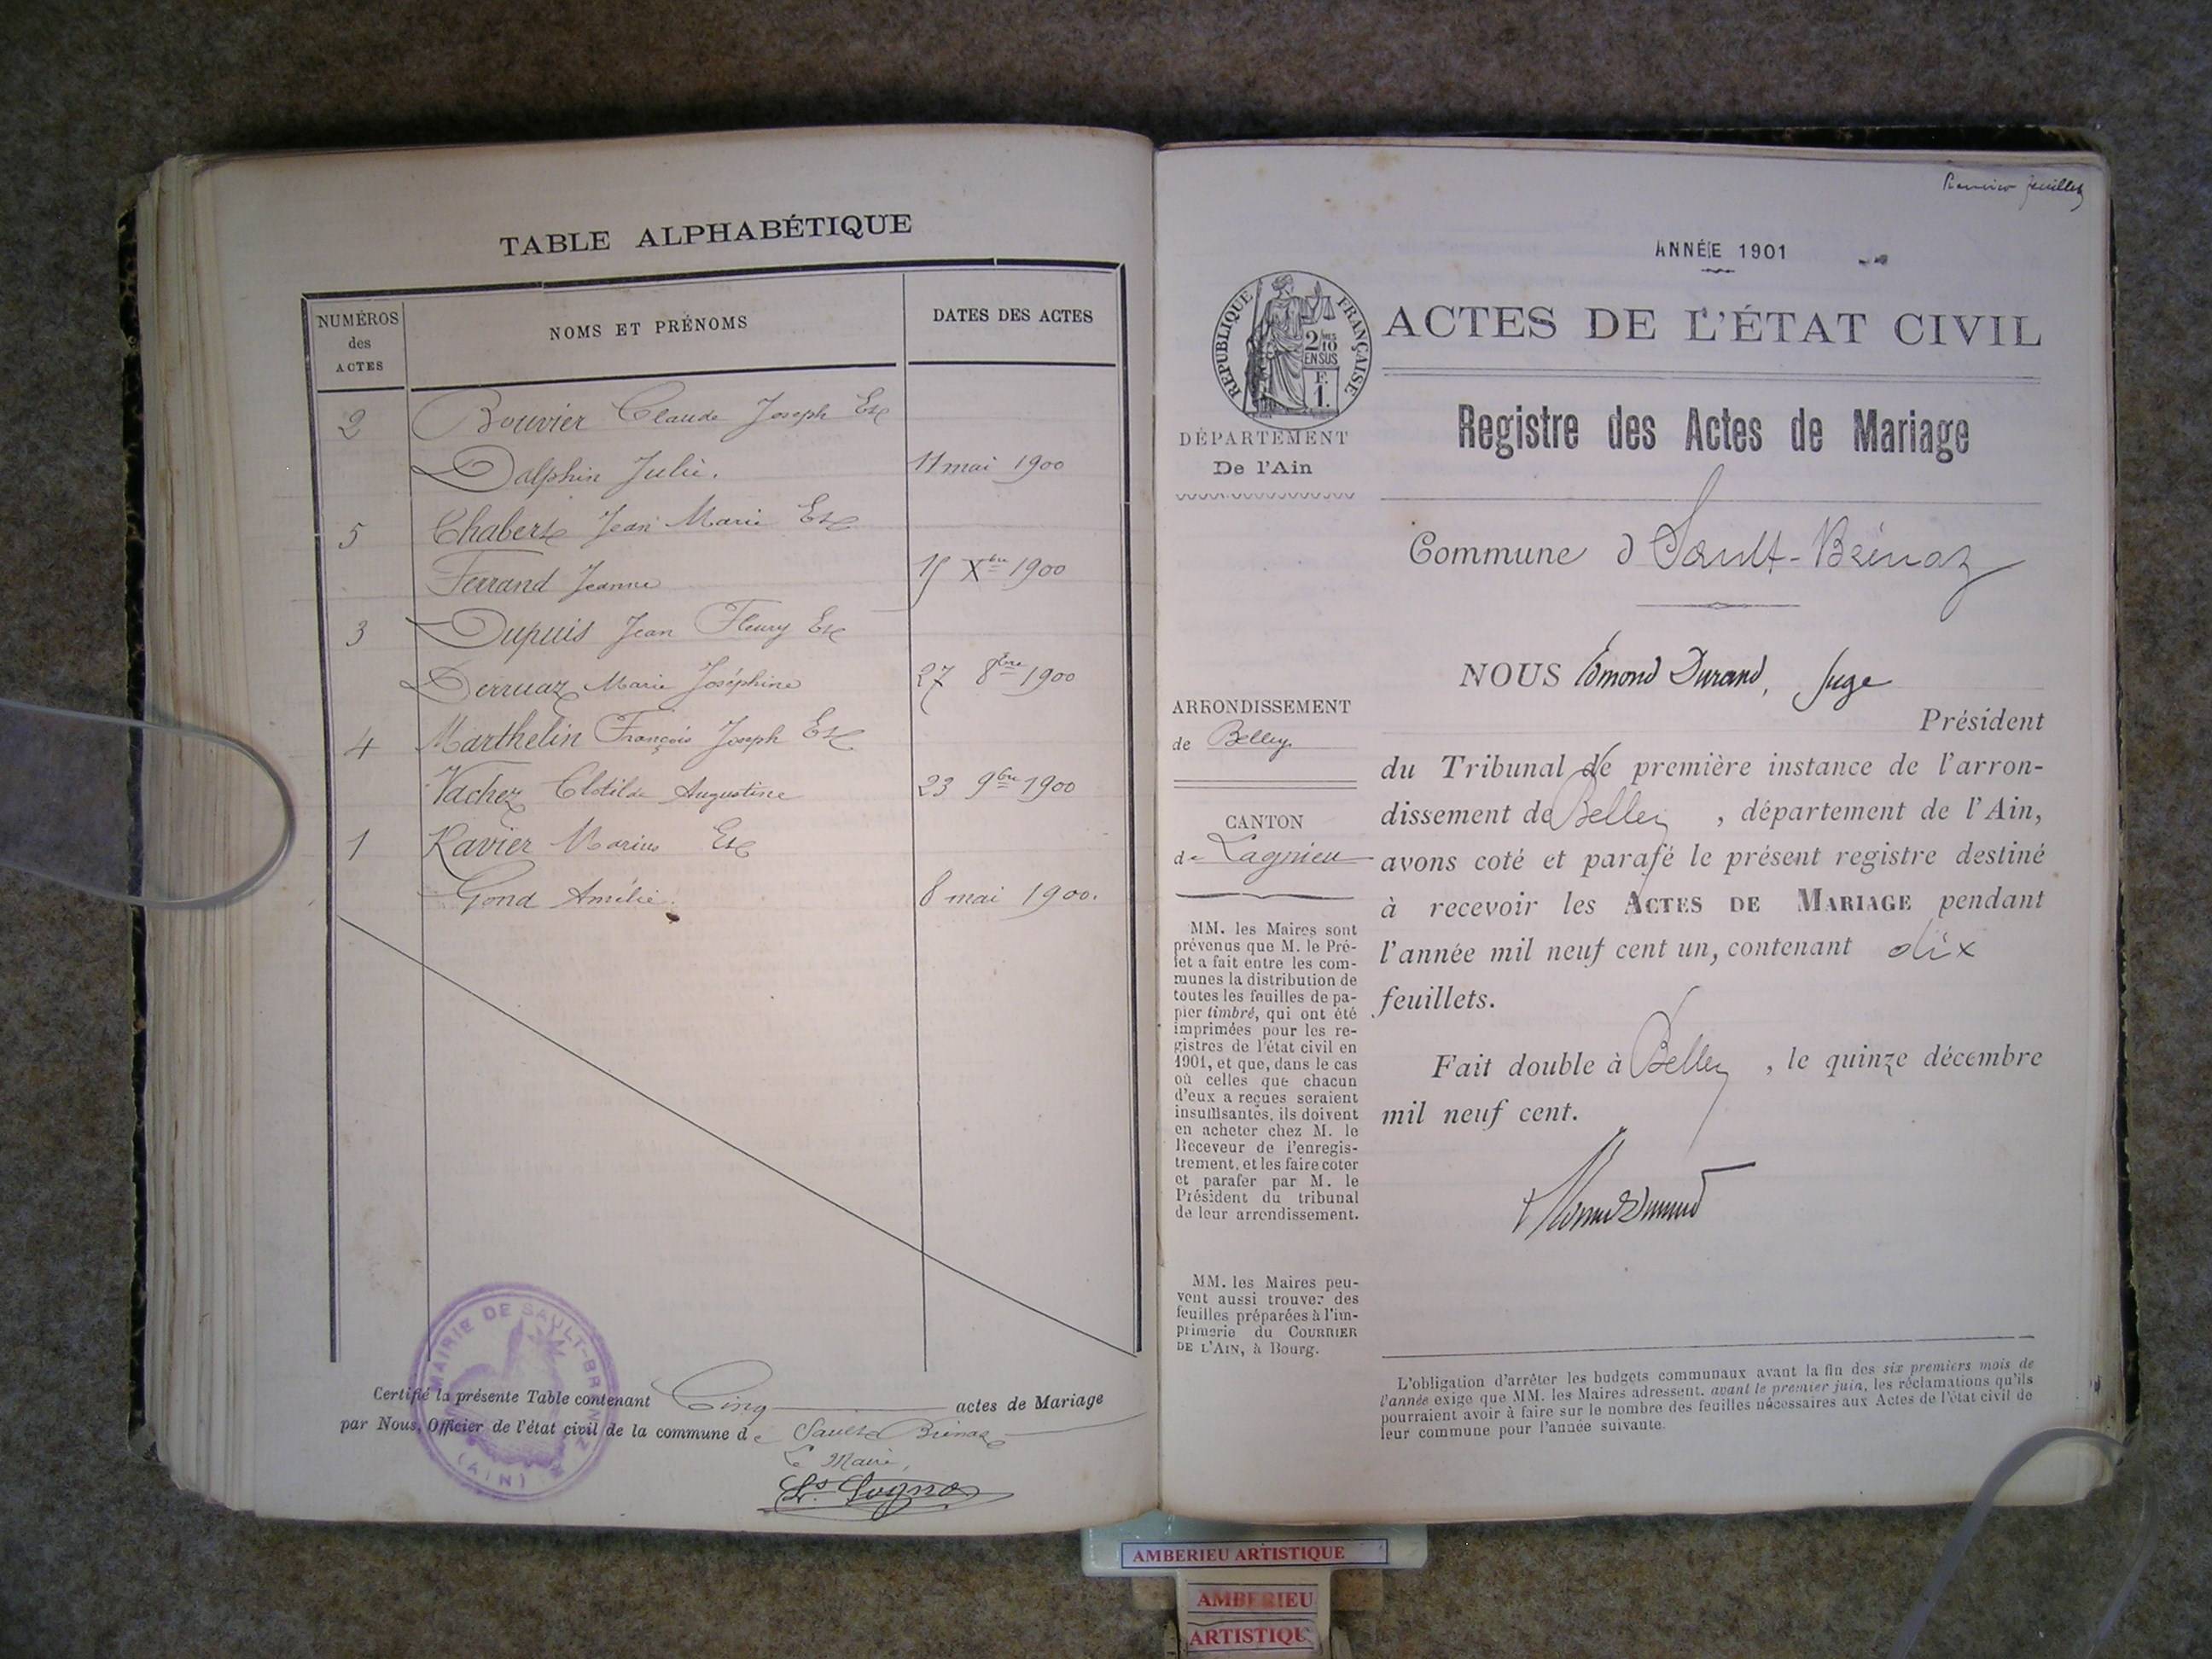 TABLE ALPHABÉTIQUE
NUMÉROS des ACTES
NOMS ET PRÉNOMS
DATES DES ACTES
2 Bouvier Claude Joseph Et
Dalphin Julie. 11 mai 1900
5 Chabert Jean Marie Et
Ferrand Jeanne 15 Xbre 1900
3 Dupuis Jean Fleury Et
Derruaz Marie Joséphine 27 8bre 1900
4 Marthelin François Joseph Et
Vachez Clotilde Augustine 23 9bre 1900
1 Ravier Marius Et
Gond Amélie. 8 mai 1900.
Certifié la présente Table contenant Cinq actes de Mariage
par Nous, Officier de l'état civil de la commune de Sault Brénaz
Le Maire,
MAIRIE DE SAULT-BRENAZ
(AIN)
Premier feuillet
ANNÉE 1901
RÉPUBLIQUE FRANÇAISE
2/10 EN SUS
F. 1.
ACTES DE L'ÉTAT CIVIL
DÉPARTEMENT
De l'Ain
Registre des Actes de Mariage
Commune d Sault-Brénaz
NOUS Edmond Durand, Juge
Président
du Tribunal de première instance de l'arron-
dissement de Belley , département de l'Ain,
avons coté et parafé le présent registre destiné
à recevoir les ACTES DE MARIAGE pendant
l'année mil neuf cent un, contenant dix
feuillets.
Fait double à Belley , le quinze décembre
mil neuf cent.
ARRONDISSEMENT
de Belley
CANTON
de Lagnieu
MM. les Maires sont
prévenus que M. le Pré-
fet a fait entre les com-
munes la distribution de
toutes les feuilles de pa-
pier timbré, qui ont été
imprimées pour les re-
gistres de l'état civil en
1901, et que, dans le cas
où celles que chacun
d'eux a reçues seraient
insuffisantes, ils doivent
en acheter chez M. le
Receveur de l'enregis-
trement, et les faire coter
et parafer par M. le
Président du tribunal
de leur arrondissement.
MM. les Maires peu-
vent aussi trouver des
feuilles préparées à l'im-
primerie du COURRIER
DE L'AIN, à Bourg.
L'obligation d'arrêter les budgets communaux avant la fin des six premiers mois de
l'année exige que MM. les Maires adressent, avant le premier juin, les réclamations qu'ils
pourraient avoir à faire sur le nombre des feuilles nécessaires aux Actes de l'état civil de
leur commune pour l'année suivante.
AMBERIEU ARTISTIQUE
AMBERIEU
ARTISTIQUE